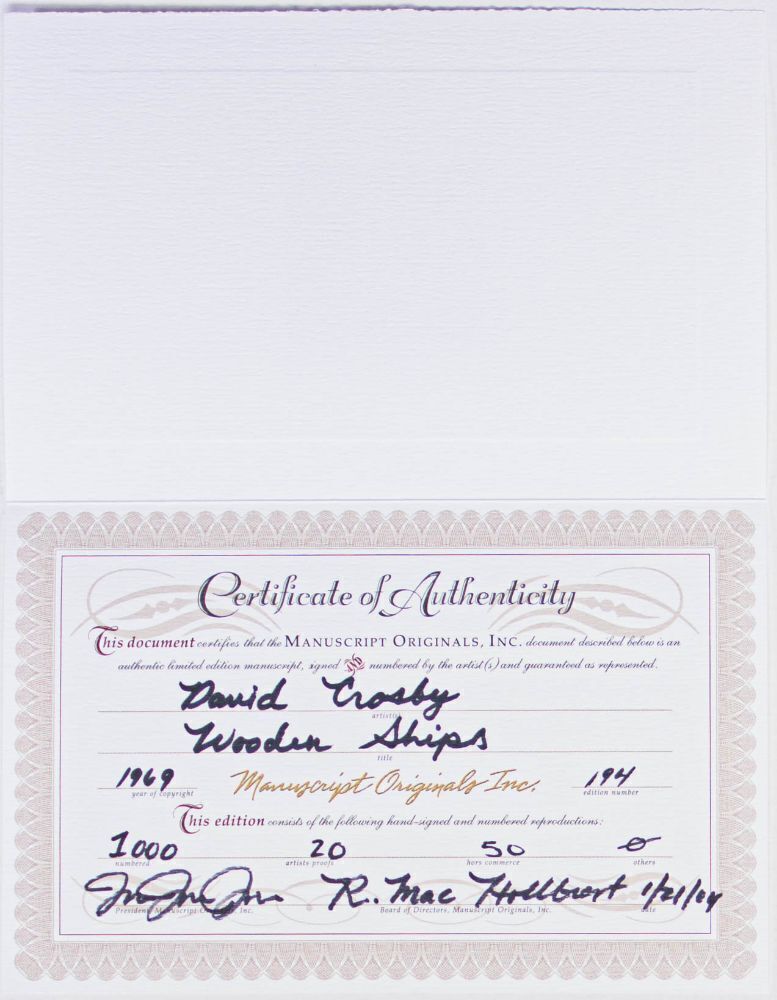 Certificate of Authenticity
This document certifies that the MANUSCRIPT ORIGINALS, INC. document described below is an
authentic limited edition manuscript, signed and numbered by the artist(s) and guaranteed as represented.
David Crosby
artist(s)
Wooden Ships
title
1969 Manuscript Originals Inc. 194
year of copyright edition number
This edition consists of the following hand-signed and numbered reproductions:
1000 20 50 0
numbered artists proofs hors commerce others
R. Mac Holbert 1/21/04
President, Manuscript Originals, Inc. Board of Directors, Manuscript Originals, Inc. date